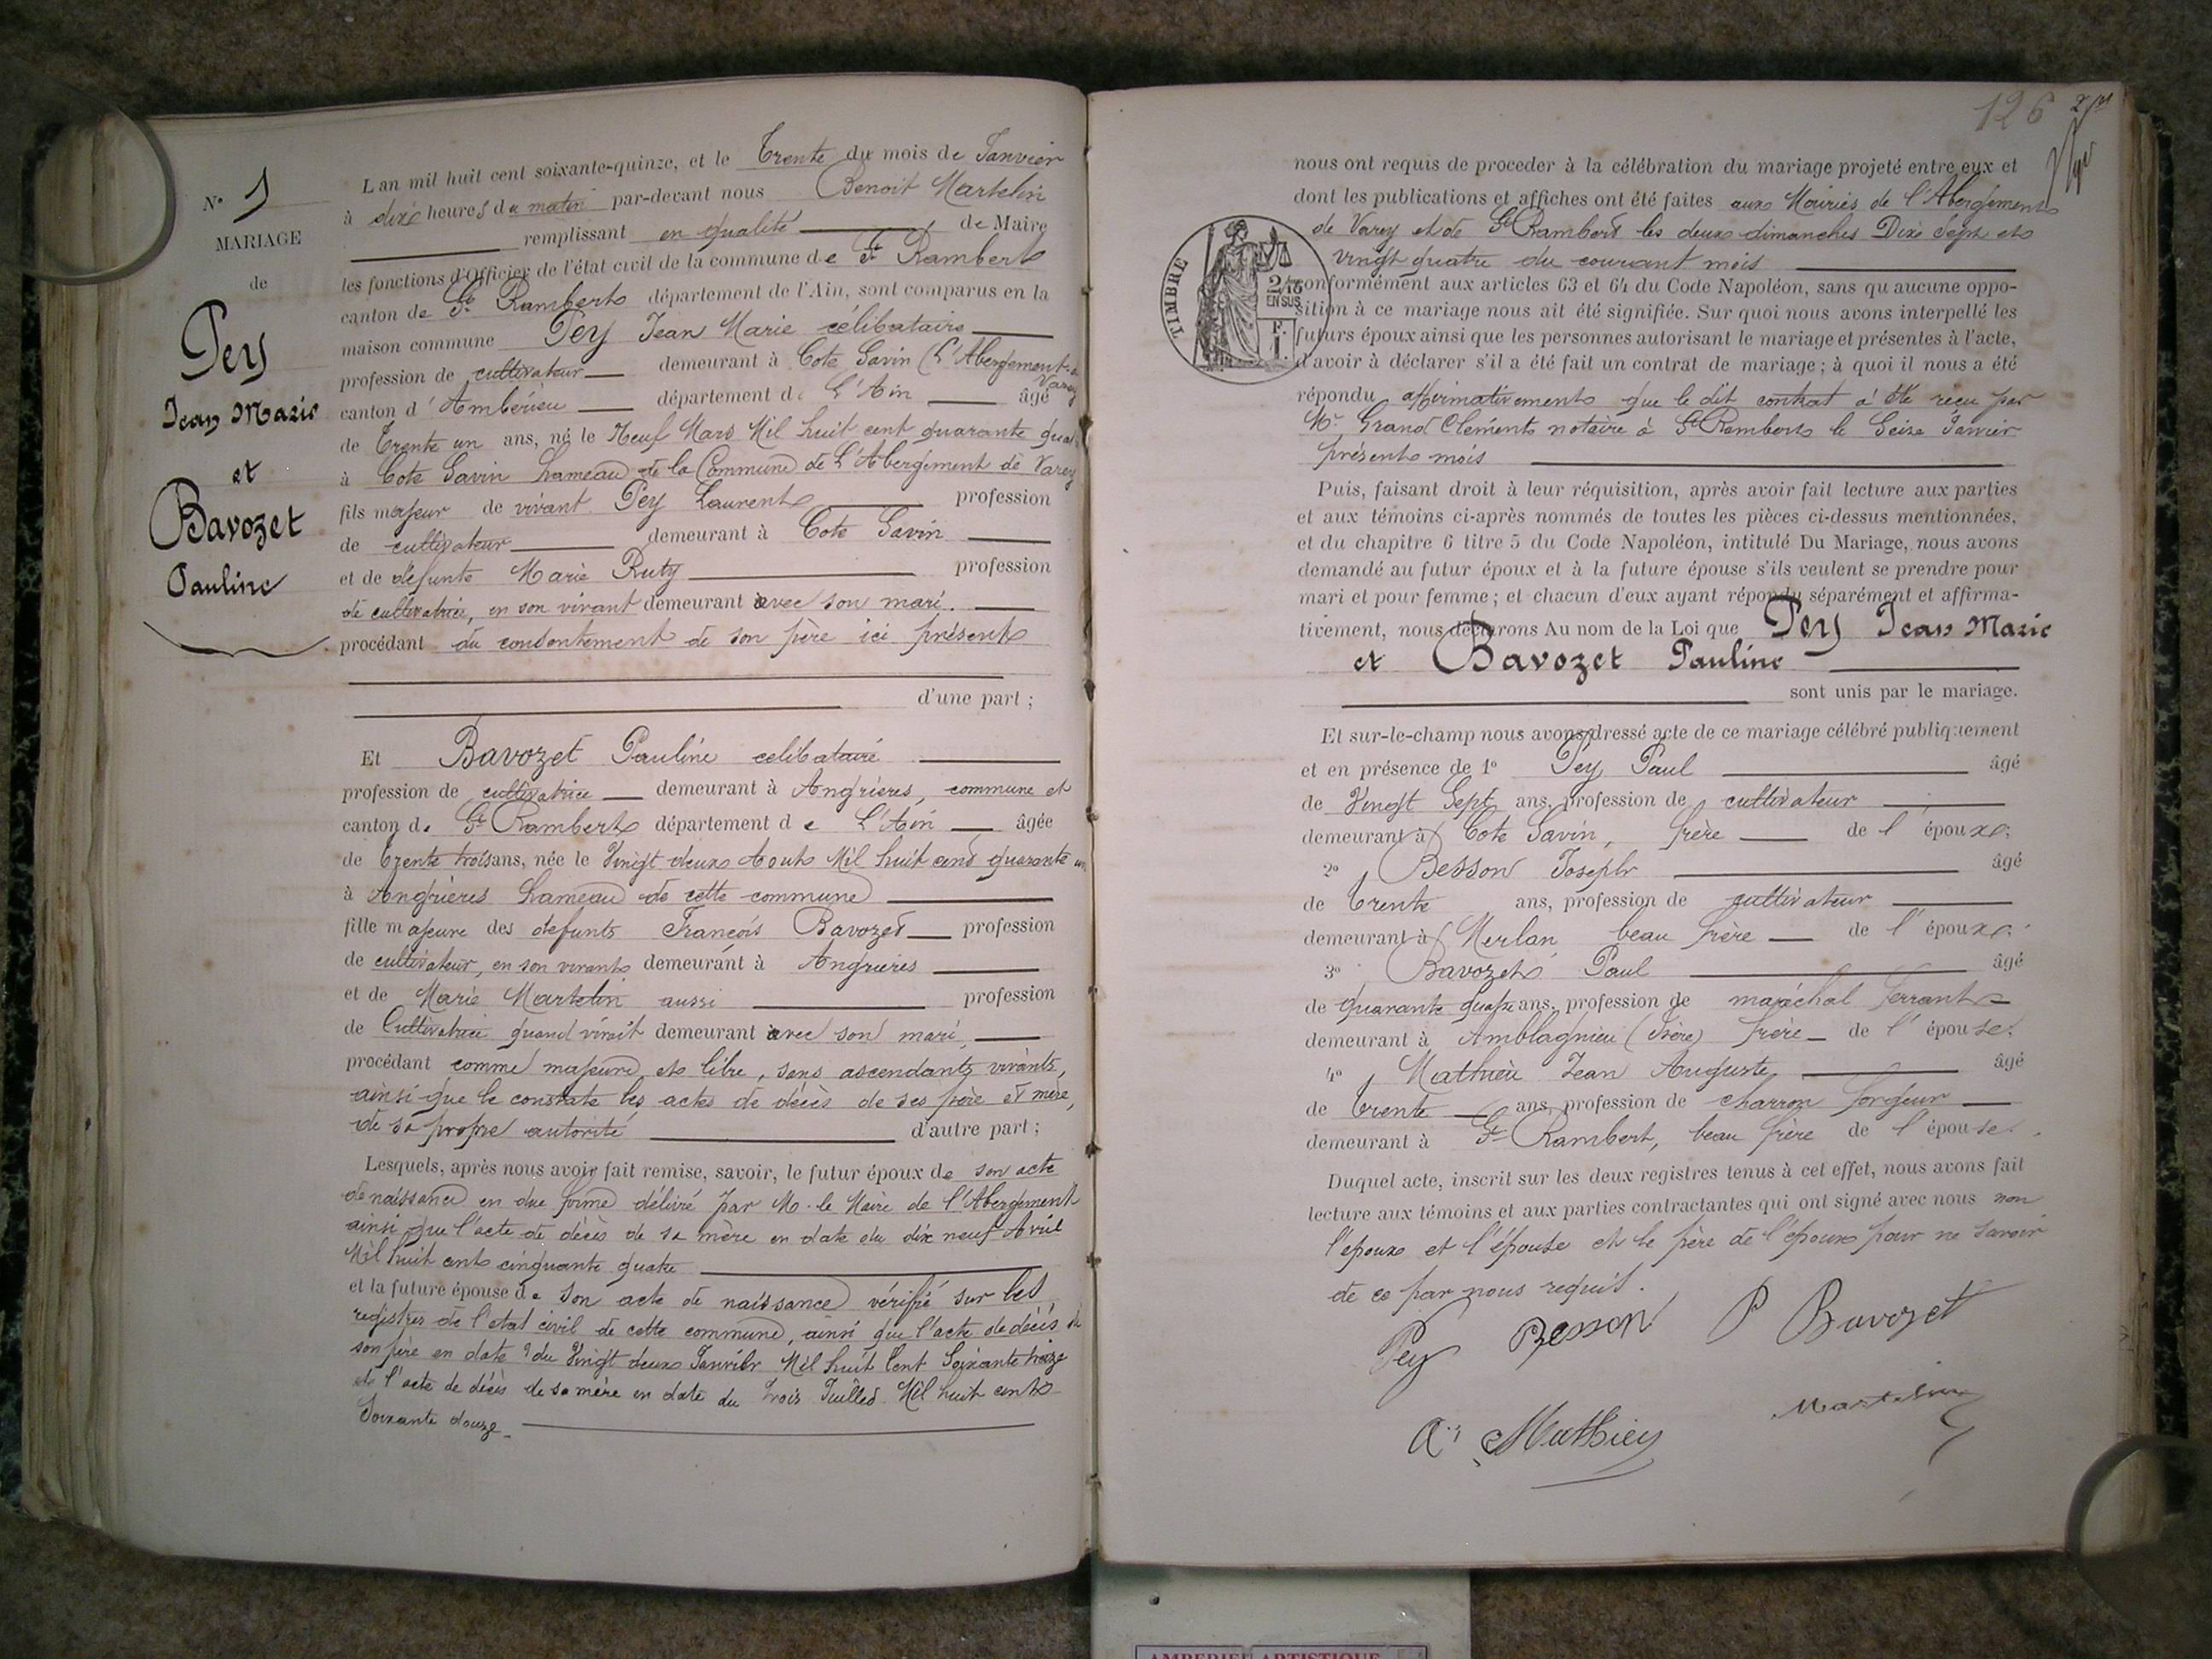 N° 1
MARIAGE
de
Pey
Jean Marie
et
Bavozet
Pauline
L'an mil huit cent soixante-quinze, et le Trente du mois de Janvier
à dix heures du matin par-devant nous Benoit Martelin
remplissant en qualité de Maire
les fonctions d'Officier de l'état civil de la commune de St Rambert
canton de St Rambert département de l'Ain, sont comparus en la
maison commune Pey Jean Marie célibataire
profession de cultivateur demeurant à Cote Savin (L'Abergement de Varey
canton d'Ambérieu département de L'Ain âgé
de Trente un ans, né le Neuf Mars Mil huit cent quarante quatre
à Cote Savin hameau de la Commune de L'Abergement de Varey
fils majeur de vivant Pey Laurent profession
de cultivateur demeurant à Cote Savin
et de défunte Marie Ruty profession
de cultivatrice, en son vivant demeurant avec son mari.
procédant du consentement de son père ici présent
d'une part ;
Et Bavozet Pauline celibataire
profession de cultivatrice demeurant à Angrières, commune et
canton de St Rambert département de L'Ain âgée
de trente trois ans, née le Vingt deux Aout Mil huit cent quarante un
à Angrières hameau de cette commune
fille majeure des defunts François Bavozet profession
de cultivateur, en son vivant demeurant à Angrieres
et de Marie Martelin aussi profession
de Cultivatrice quand vivait demeurant avec son mari,
procédant comme majeure et libre, sans ascendants vivants,
ainsi que le constate les actes de décès de ses père et mère,
de sa propre autorité d'autre part ;
Lesquels, après nous avoir fait remise, savoir, le futur époux de son acte
de naissance en due forme délivré par M. le Maire de l'Abergement
ainsi que l'acte de décès de sa mère en date du dix neuf Avril
Mil huit cent cinquante quatre
et la future épouse de son acte de naissance vérifié sur les
registres de l'etat civil de cette commune, ainsi que l'acte de décès de
son père en date du Vingt deux Janvier Mil huit Cent Soixante treize
et l'acte de décès de sa mère en date du trois Juillet Mil huit cent
Soixante douze
126
TIMBRE
2/10
EN SUS
F.
1.
nous ont requis de proceder à la célébration du mariage projeté entre eux et
dont les publications et affiches ont été faites aux Mairies de l'Abergement
de Varey et de St Rambert les deux dimanches Dix Sept et
vingt quatre du courant mois
conformément aux articles 63 et 64 du Code Napoléon, sans qu'aucune oppo-
sition à ce mariage nous ait été signifiée. Sur quoi nous avons interpellé les
futurs époux ainsi que les personnes autorisant le mariage et présentes à l'acte,
d'avoir à déclarer s'il a été fait un contrat de mariage ; à quoi il nous a été
répondu affirmativement que le dit contrat a été reçu par
Mr Grand Clément notaire à St Rambert le Seize Janvier
présent mois
Puis, faisant droit à leur réquisition, après avoir fait lecture aux parties
et aux témoins ci-après nommés de toutes les pièces ci-dessus mentionnées,
et du chapitre 6 titre 5 du Code Napoléon, intitulé Du Mariage, nous avons
demandé au futur époux et à la future épouse s'ils veulent se prendre pour
mari et pour femme ; et chacun d'eux ayant répondu séparément et affirma-
tivement, nous déclarons Au nom de la Loi que Pey Jean Marie
et Bavozet Pauline
sont unis par le mariage.
Et sur-le-champ nous avons dressé acte de ce mariage célébré publiquement
et en présence de 1° Pey Paul âgé
de Vingt Sept ans, profession de cultivateur
demeurant à Cote Savin, frère de l'époux.
2° Besson Joseph âgé
de trente ans, profession de cultivateur
demeurant à Merlan beau frère de l'époux.
3° Bavozet Paul âgé
de quarante quatre ans, profession de maréchal ferrant
demeurant à Amblagnieu (Isère) frère de l'épouse.
4° Mathieu Jean Auguste âgé
de trente ans, profession de charron forgeur
demeurant à St Rambert, beau frère de l'épouse.
Duquel acte, inscrit sur les deux registres tenus à cet effet, nous avons fait
lecture aux témoins et aux parties contractantes qui ont signé avec nous non
l'epoux et l'épouse et le père de l'époux pour ne savoir
de ce par nous requis.
Pey Besson P Bavozet
Martelin
A. Mathieu
AMBERIEU ARTISTIQUE